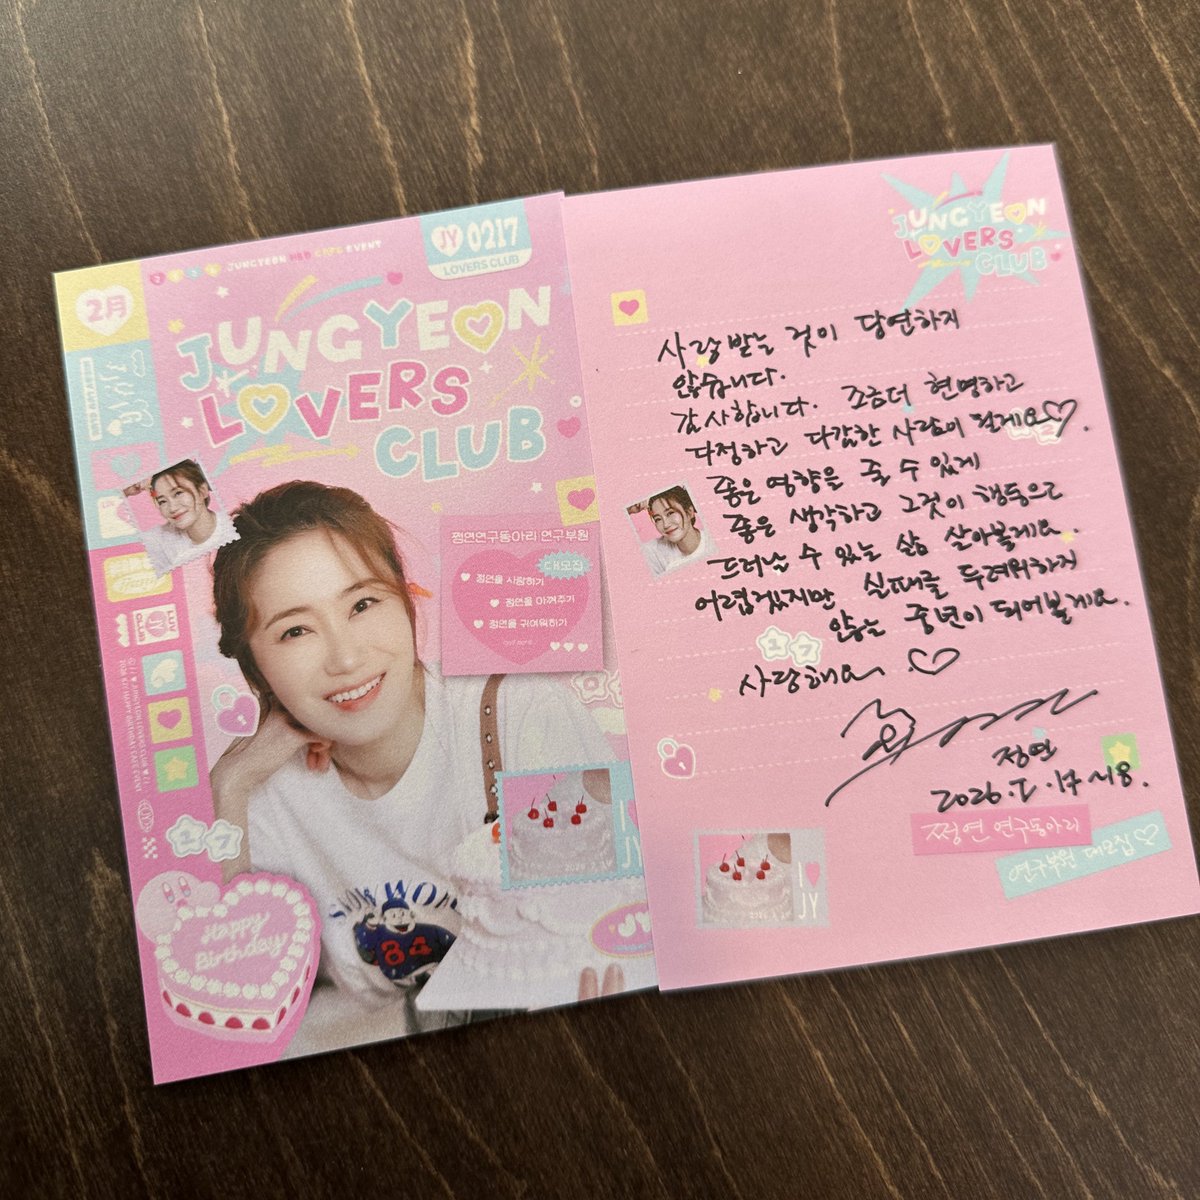 2026 JUNGYEON HBD CAFE EVENT
JY 0217
LOVERS CLUB
2月
JUNGYEON
LOVERS
CLUB
쩡연연구동아리 연구부원
대모집
정연을 사랑하기
정연을 아껴주기
정연을 귀여워하기
LUV
JY
CLUB
17
Happy
Birthday
SNOW WORK
84
I ♥
JY
JY
JUNGYEON
LOVERS
CLUB
사랑받는 것이 당연하지
않습니다.
감사합니다. 조금더 현명하고
다정하고 다감한 사람이 될게요♡.
좋은 영향을 줄 수 있게
좋은 생각하고 그것이 행동으로
드러날 수 있는 삶 살아볼게요.
어렵겠지만 실패를 두려워하지
않는 중년이 되어볼게요.
17
사랑해요. ♡
정연
2026. 2. 17 ~18.
쩡연 연구동아리
연구부원 대모집♡
I ♥
JY